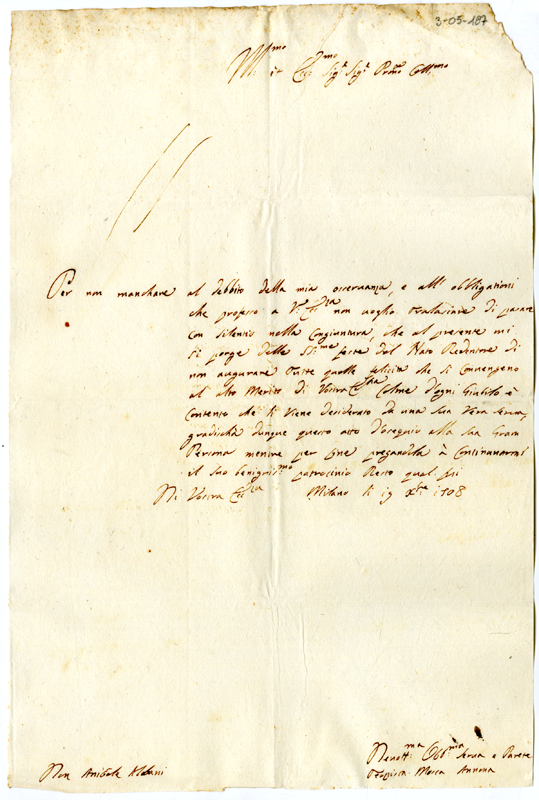 3-05-187
Ill.mo et Ecc.mo Sig.r Sig.r Prone Coll.mo
Per non manchare al debbito della mia osservanza, e all' obbligationi
che professo a V. Ecc.za non voglio tralasciare di passare
con silentio nella Congiuntura, che al presente mi
si porge delle SS.me feste del Nato Redentore di
non augurare tutte quelle felicità che si convengono
al alto Merito di Vostra Ecc.za Colme d'ogni Giubilo è
Contento che li Viene desiderato da una Sua Vera Serva,
gradischa dunque questo atto d'ossequio alla sua Gram
Persona mentre per fine pregandola à Continuarmi
il suo benignis.mo patrocinio Resto qual fui
Di Vostra Ecc.za Milano li 19 X.bre 1708
Devott.ma Obb.ma Serva e Parete
Mosca Annona
Don Anibale Albani